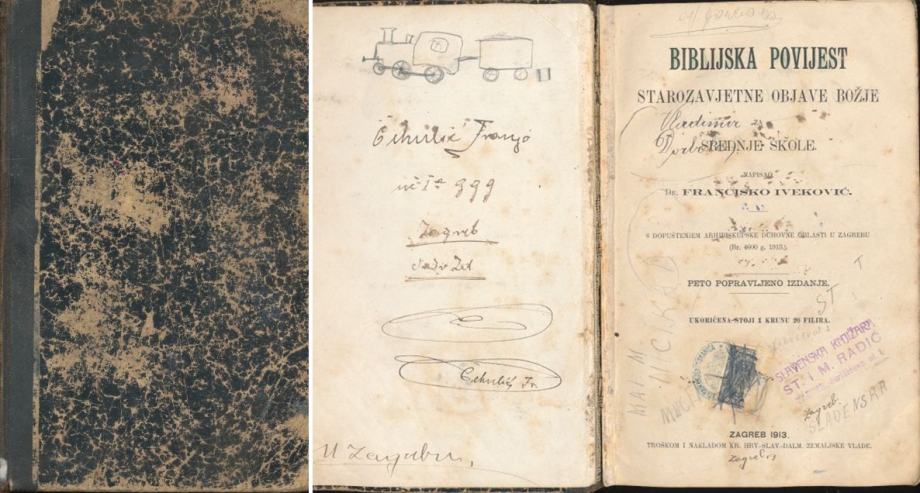 Cehulić Franjo
Zagreb
Cehulić Fr.
U Zagrebu,
BIBLIJSKA POVIJEST
STAROZAVJETNE OBJAVE BOŽJE
Vladimir
ZA
SREDNJE ŠKOLE.
NAPISAO
DR. FRANCISKO IVEKOVIĆ.
S DOPUŠTENJEM ARHIBISKUPSKE DUHOVNE OBLASTI U ZAGREBU
(Br. 4600 g. 1913.).
PETO POPRAVLJENO IZDANJE.
UKORIČENA STOJI 1 KRUNU 20 FILIRA.
SLAVENSKA KNJIŽARA
ST. I M. RADIĆ
Zagreb.
ZAGREB 1913.
TROŠKOM I NAKLADOM KR. HRV.-SLAV.-DALM. ZEMALJSKE VLADE.
Zagreb